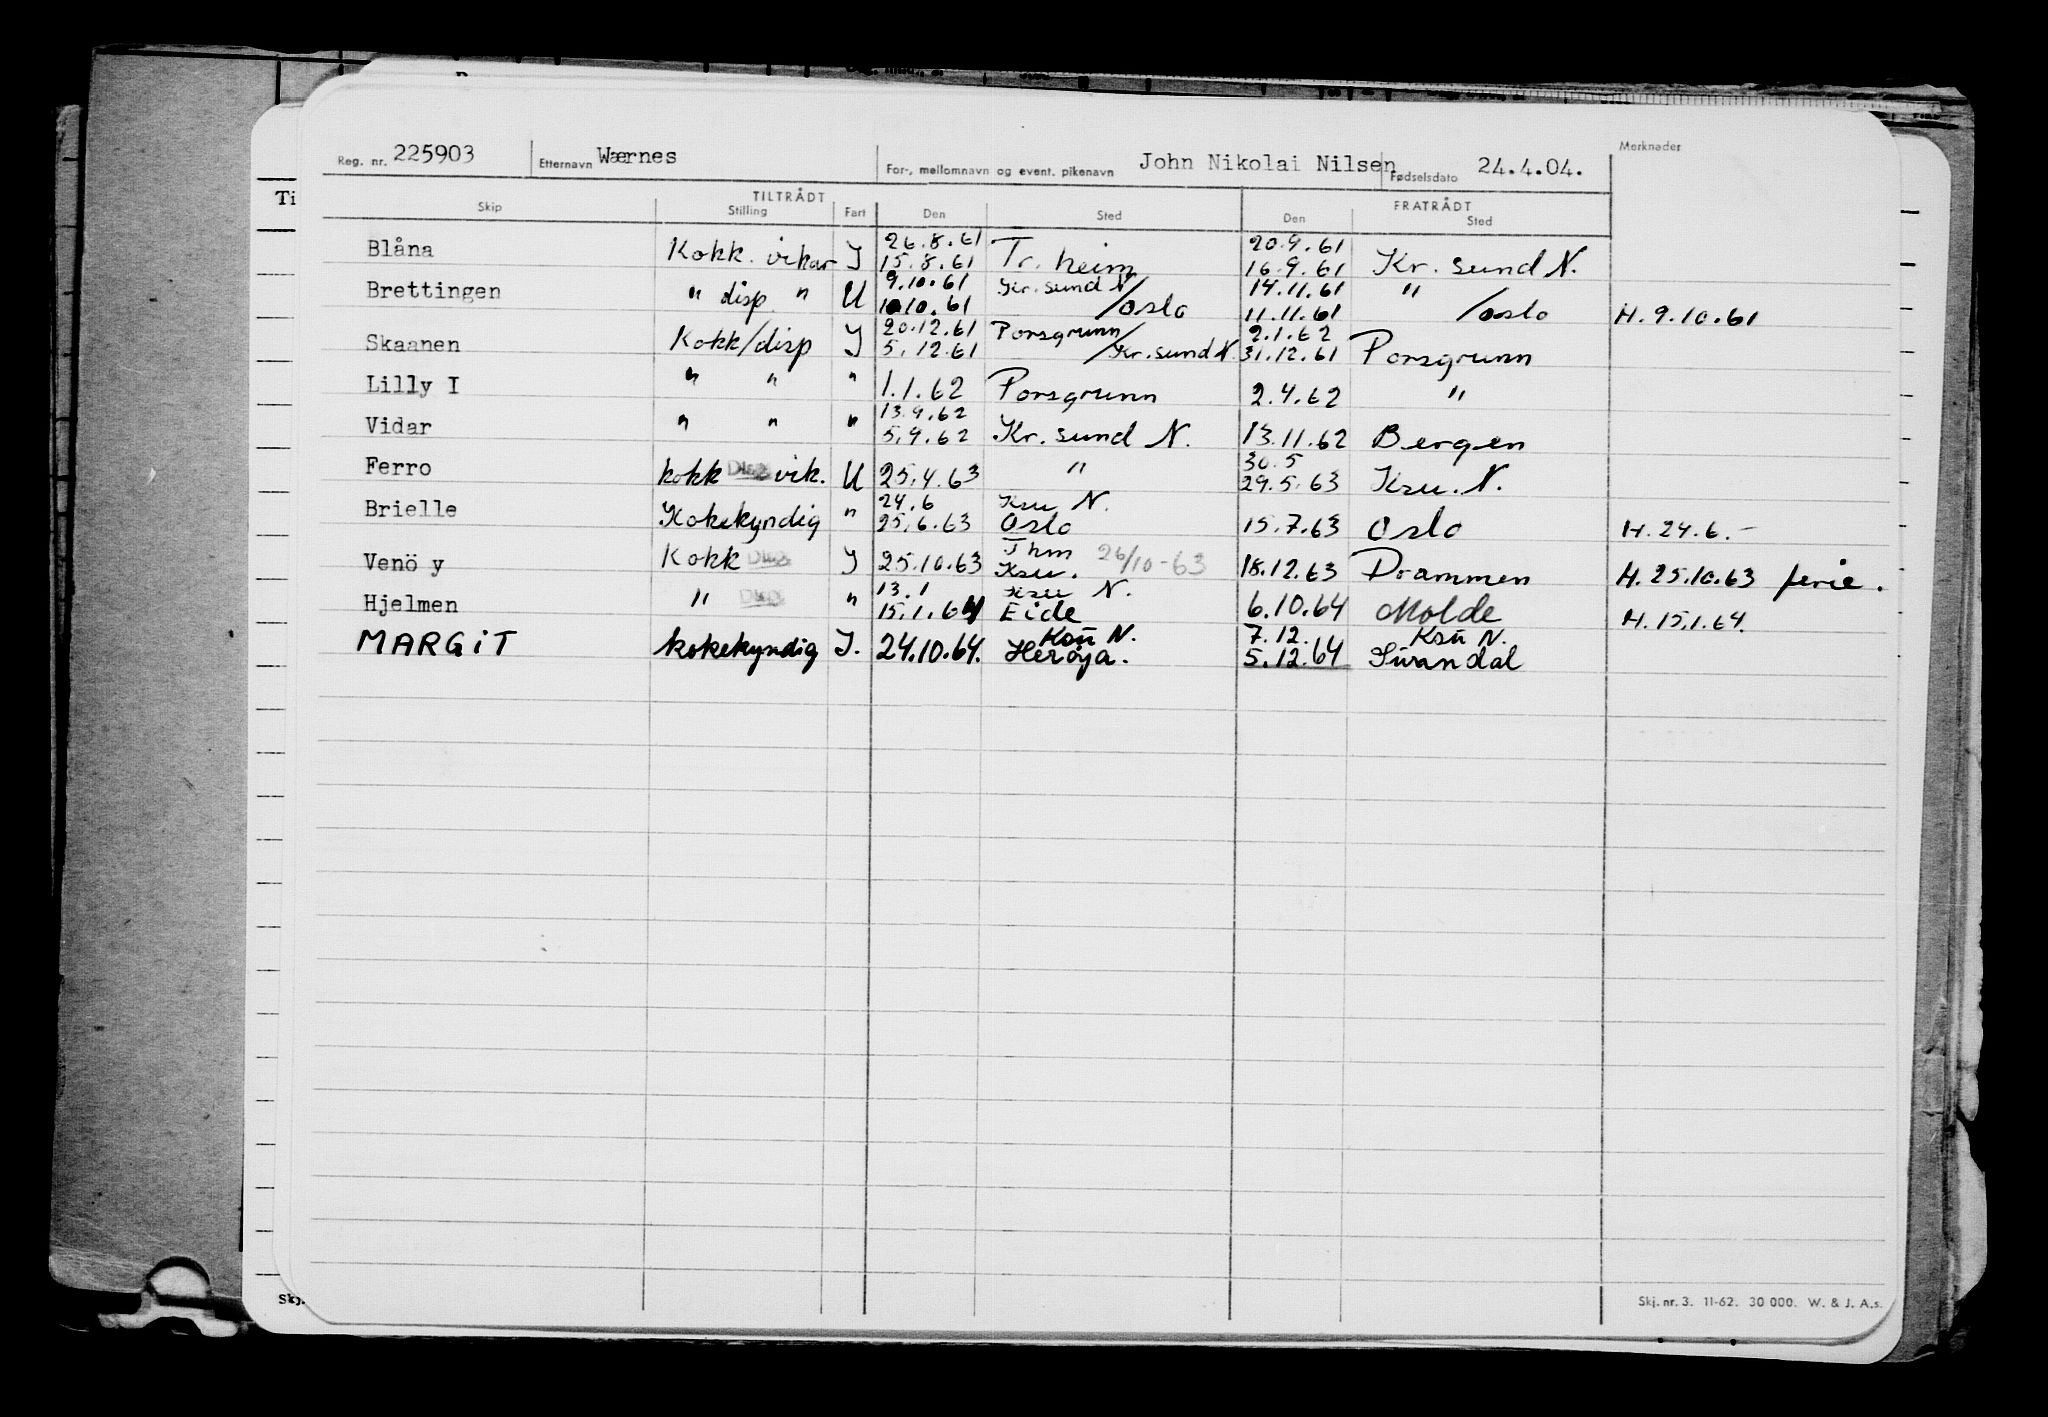 Reg. nr. 225903 Etternavn Wærnes For-, mellomnavn og event. pikenavn John Nikolai Nilsen Fødselsdato 24.4.04. Merknader
Ti
TILTRÅDT FRATRÅDT
Skip Stilling Fart Den Sted Den Sted
26.8.61 20.9.61
Blåna Kokk. vikar J 15.8.61 Tr. heim 16.9.61 Kr. sund N.
9.10.61 Kr. sund N 14.11.61 "
Brettingen " disp. " U 10.10.61 /Oslo 11.11.61 /Oslo H. 9.10.61
20.12.61 Porsgrunn 2.1.62
Skaanen Kokk/disp J 5.12.61 /Kr. sund N. 31.12.61 Porsgrunn
Lilly I " " " 1.1.62 Porsgrunn 2.4.62 "
13.9.62
Vidar " " " 5.9.62 Kr. sund N. 13.11.62 Bergen
30.5
Ferro kokk Disp vik. U 25.4.63 " 29.5.63 Ksu. N.
24.6 Ksu N.
Brielle Kokekyndig " 25.6.63 Oslo 15.7.63 Oslo H. 24.6.-
Thm 26/10-63
Venö y Kokk Disp J 25.10.63 Ksu. 18.12.63 Drammen H. 25.10.63 ferie.
13.1 Ksu N.
Hjelmen " Disp " 15.1.64 Eide 6.10.64 Molde H. 15.1.64.
Ksu N. 7.12. Ksu N.
MARGiT kokekyndig J. 24.10.64. Herøya. 5.12.64 Surandal
Skj. Skj. nr. 3. 11-62. 30 000. W. & J. A.s.